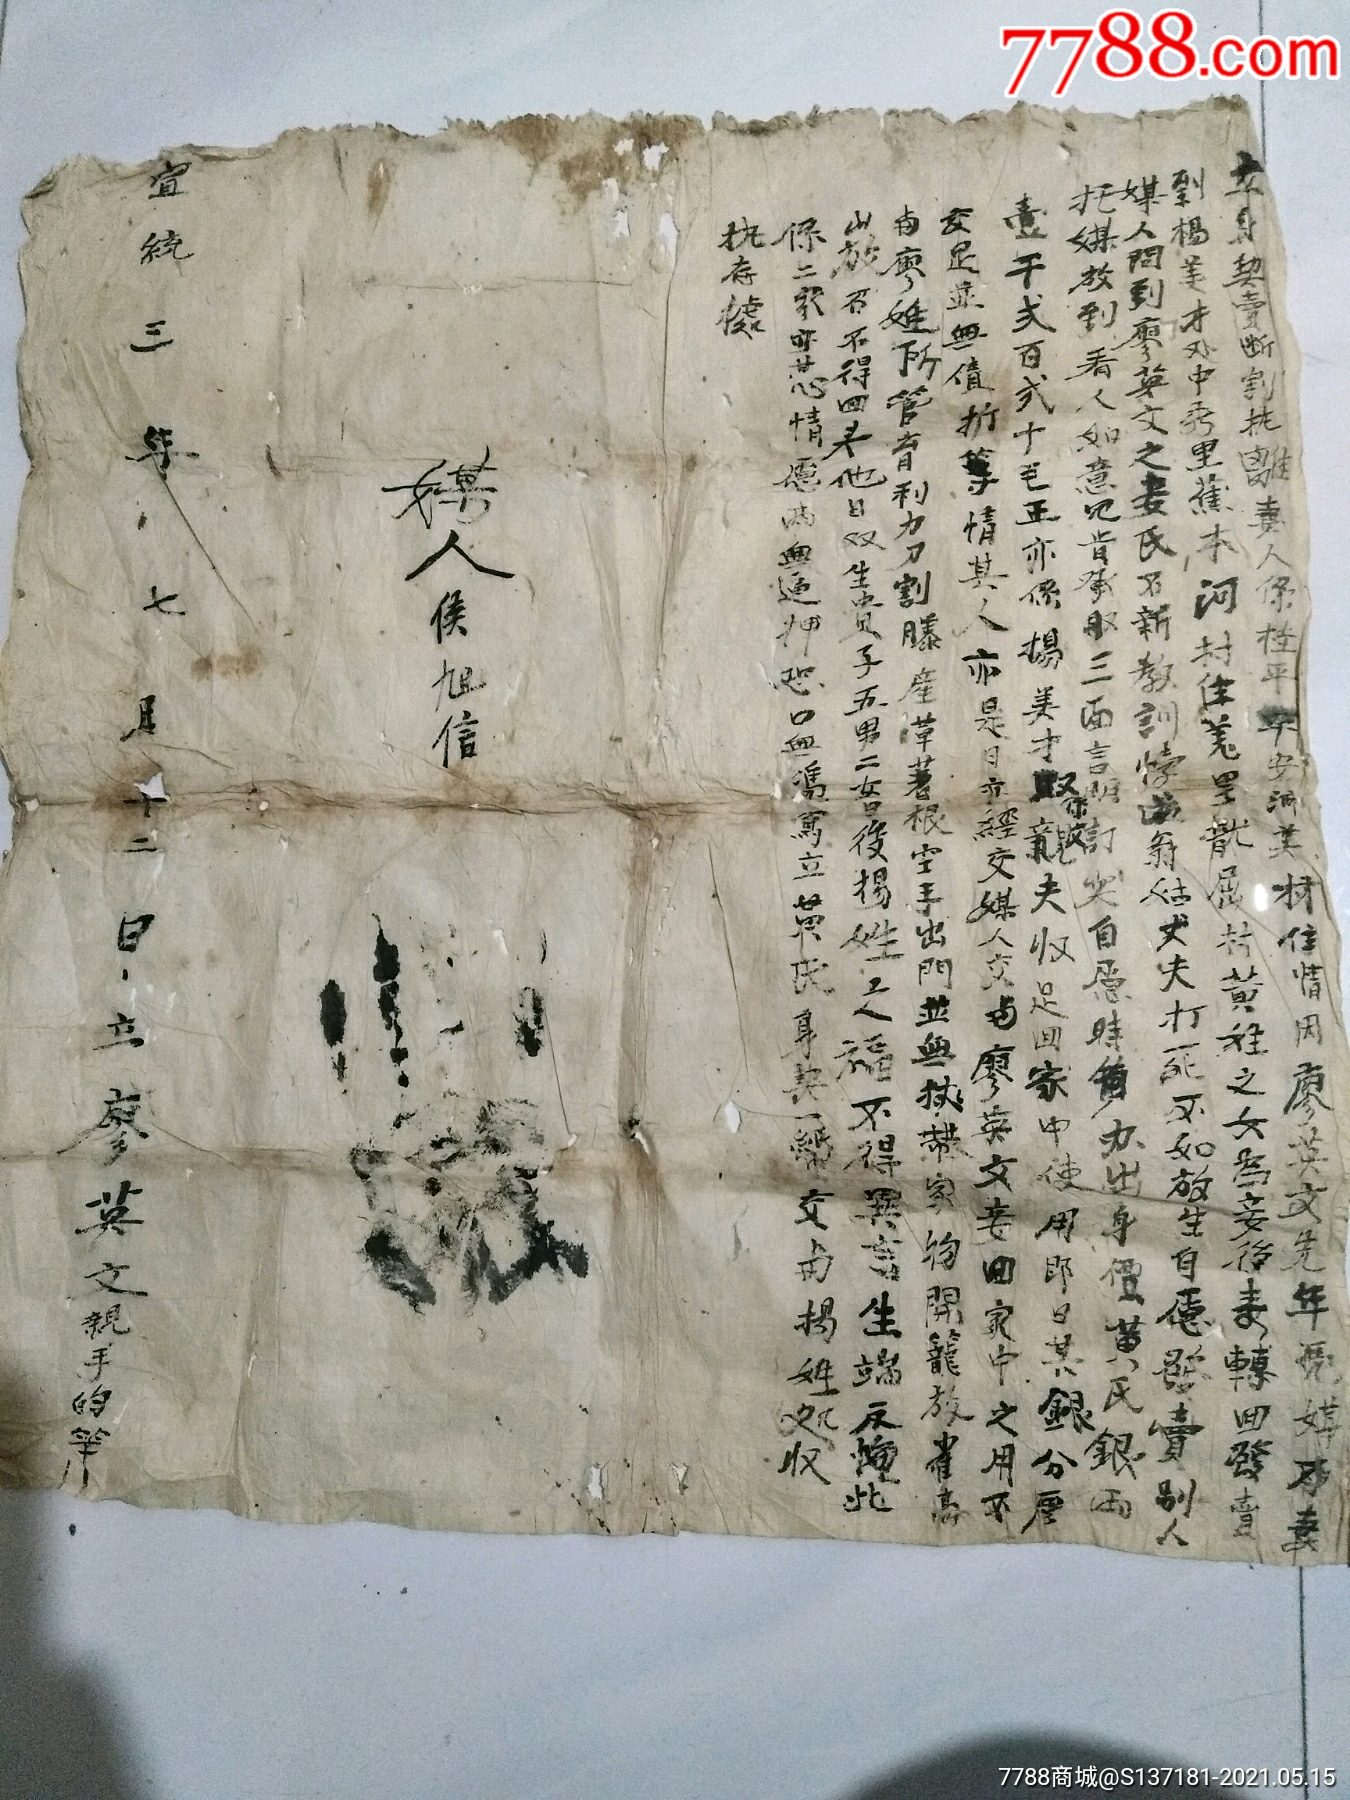 7788.com
立身契賣斷割抌離妻人係桂平平安洞美村住情因廖英文先年憑媒乃妻
到楊美才处中秀里蕉本河村住羗里龍居村黃稚之女為妾後妻轉回發賣
媒人問到廖英文之妻氏不新教訓悖逆翁姑丈夫打死不如放生自愿發賣別人
托媒放到看人如意心肯承取三面言明訂定自愿時質办出身價黃氏銀両
壹千弍百弍十毛正亦係楊美才親夫收足回家中使用即日其銀分厘
交足並無債折等情其人亦是日亦經交媒人交與廖英文妾回家中之用不
與廖姓所管有利刀割藤產草蓍根空手出門並無挾帶家物開籠放雀高
山放石不得回來他日双生貴子五男二女日後楊姓之福不得異言生端反悔此
係二家亦共心情愿両無逼押恐口無馮寫立黃氏身契一紙交與楊姓収
执存㨿
媒人侯旭信
宣統三年七月十二日立廖英文親手的筆
7788商城@S137181-2021.05.15